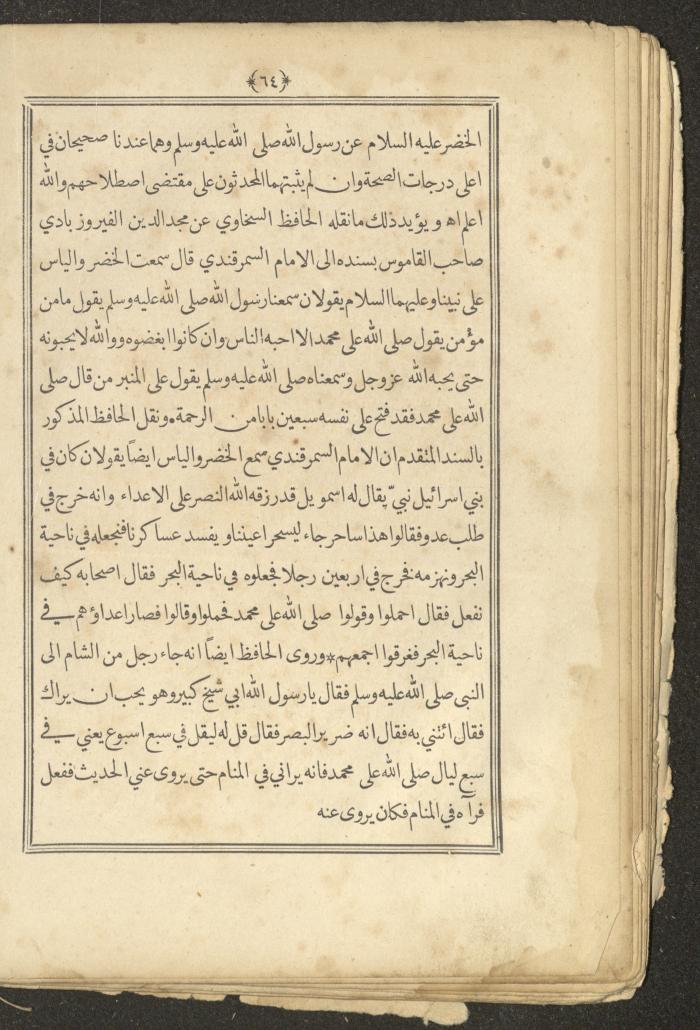 ﴿٦٤﴾
الخضر عليه السلام عن رسول الله صلى الله عليه وسلم وهما عندنا صحيحان في
اعلى درجات الصحة وان لم يثبتهما المحدثون على مقتضى اصطلاحهم والله
اعلم اه ويؤيد ذلك ما نقله الحافظ السخاوي عن مجد الدين الفيروز بادي
صاحب القاموس بسنده الى الامام السمرقندي قال سمعت الخضر والياس
على نبينا وعليهما السلام يقولان سمعنا رسول الله صلى الله عليه وسلم يقول ما من
مؤمن يقول صلى الله على محمد الا احبه الناس وان كانوا ابغضوه ووالله لا يحبونه
حتى يحبه الله عز وجل وسمعناه صلى الله عليه وسلم يقول على المنبر من قال صلى
الله على محمد فقد فتح على نفسه سبعين بابا من الرحمة * ونقل الحافظ المذكور
بالسند المتقدم ان الامام السمرقندي سمع الخضر والياس ايضاً يقولان كان في
بني اسرائيل نبيّ يقال له اسمويل قد رزقه الله النصر على الاعداء وانه خرج في
طلب عدو فقالوا هذا ساحر جاء ليسحر اعيننا ويفسد عساكرنا فنجعله في ناحية
البحر ونهزمه فخرج في اربعين رجلا فجعلوه في ناحية البحر فقال اصحابه كيف
نفعل فقال احملوا وقولوا صلى الله على محمد فحملوا وقالوا فصار اعداؤهم في
ناحية البحر فغرقوا اجمعهم * وروى الحافظ ايضاً انه جاء رجل من الشام الى
النبي صلى الله عليه وسلم فقال يا رسول الله ابي شيخ كبير وهو يحب ان يراك
فقال ائتني به فقال انه ضرير البصر فقال قل له ليقل في سبع اسبوع يعني في
سبع ليال صلى الله على محمد فانه يراني في المنام حتى يروى عني الحديث ففعل
فرآه في المنام فكان يروى عنه